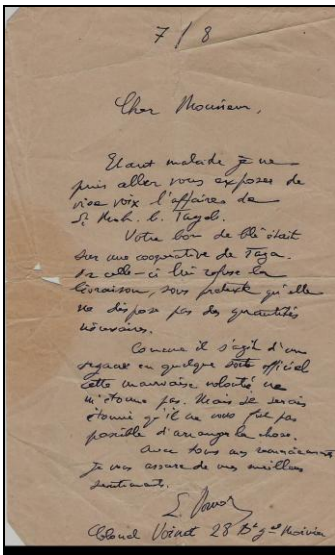 7/8
Cher Monsieur,
Etant malade je ne
puis aller vous exposer de
vive voix l'affaires de
Si Moh. b. Tayeb.
Votre bon de blé était
sur une cooperative de Taza.
Or celle-ci lui refuse la
livraison, sous pretexte qu'elle
ne dispose pas des quantités
nécessaires.
Comme il s'agit d'un
organe en quelque sorte officiel
cette mauvaise volonté ne
m'étonne pas. Mais je serais
étonné qu'il ne vous fut pas
possible d'arranger la chose.
Avec tous mes remerciements
je vous assure de mes meilleurs
sentiments.
Colonel Voinot 28 Bd Gal Moinier